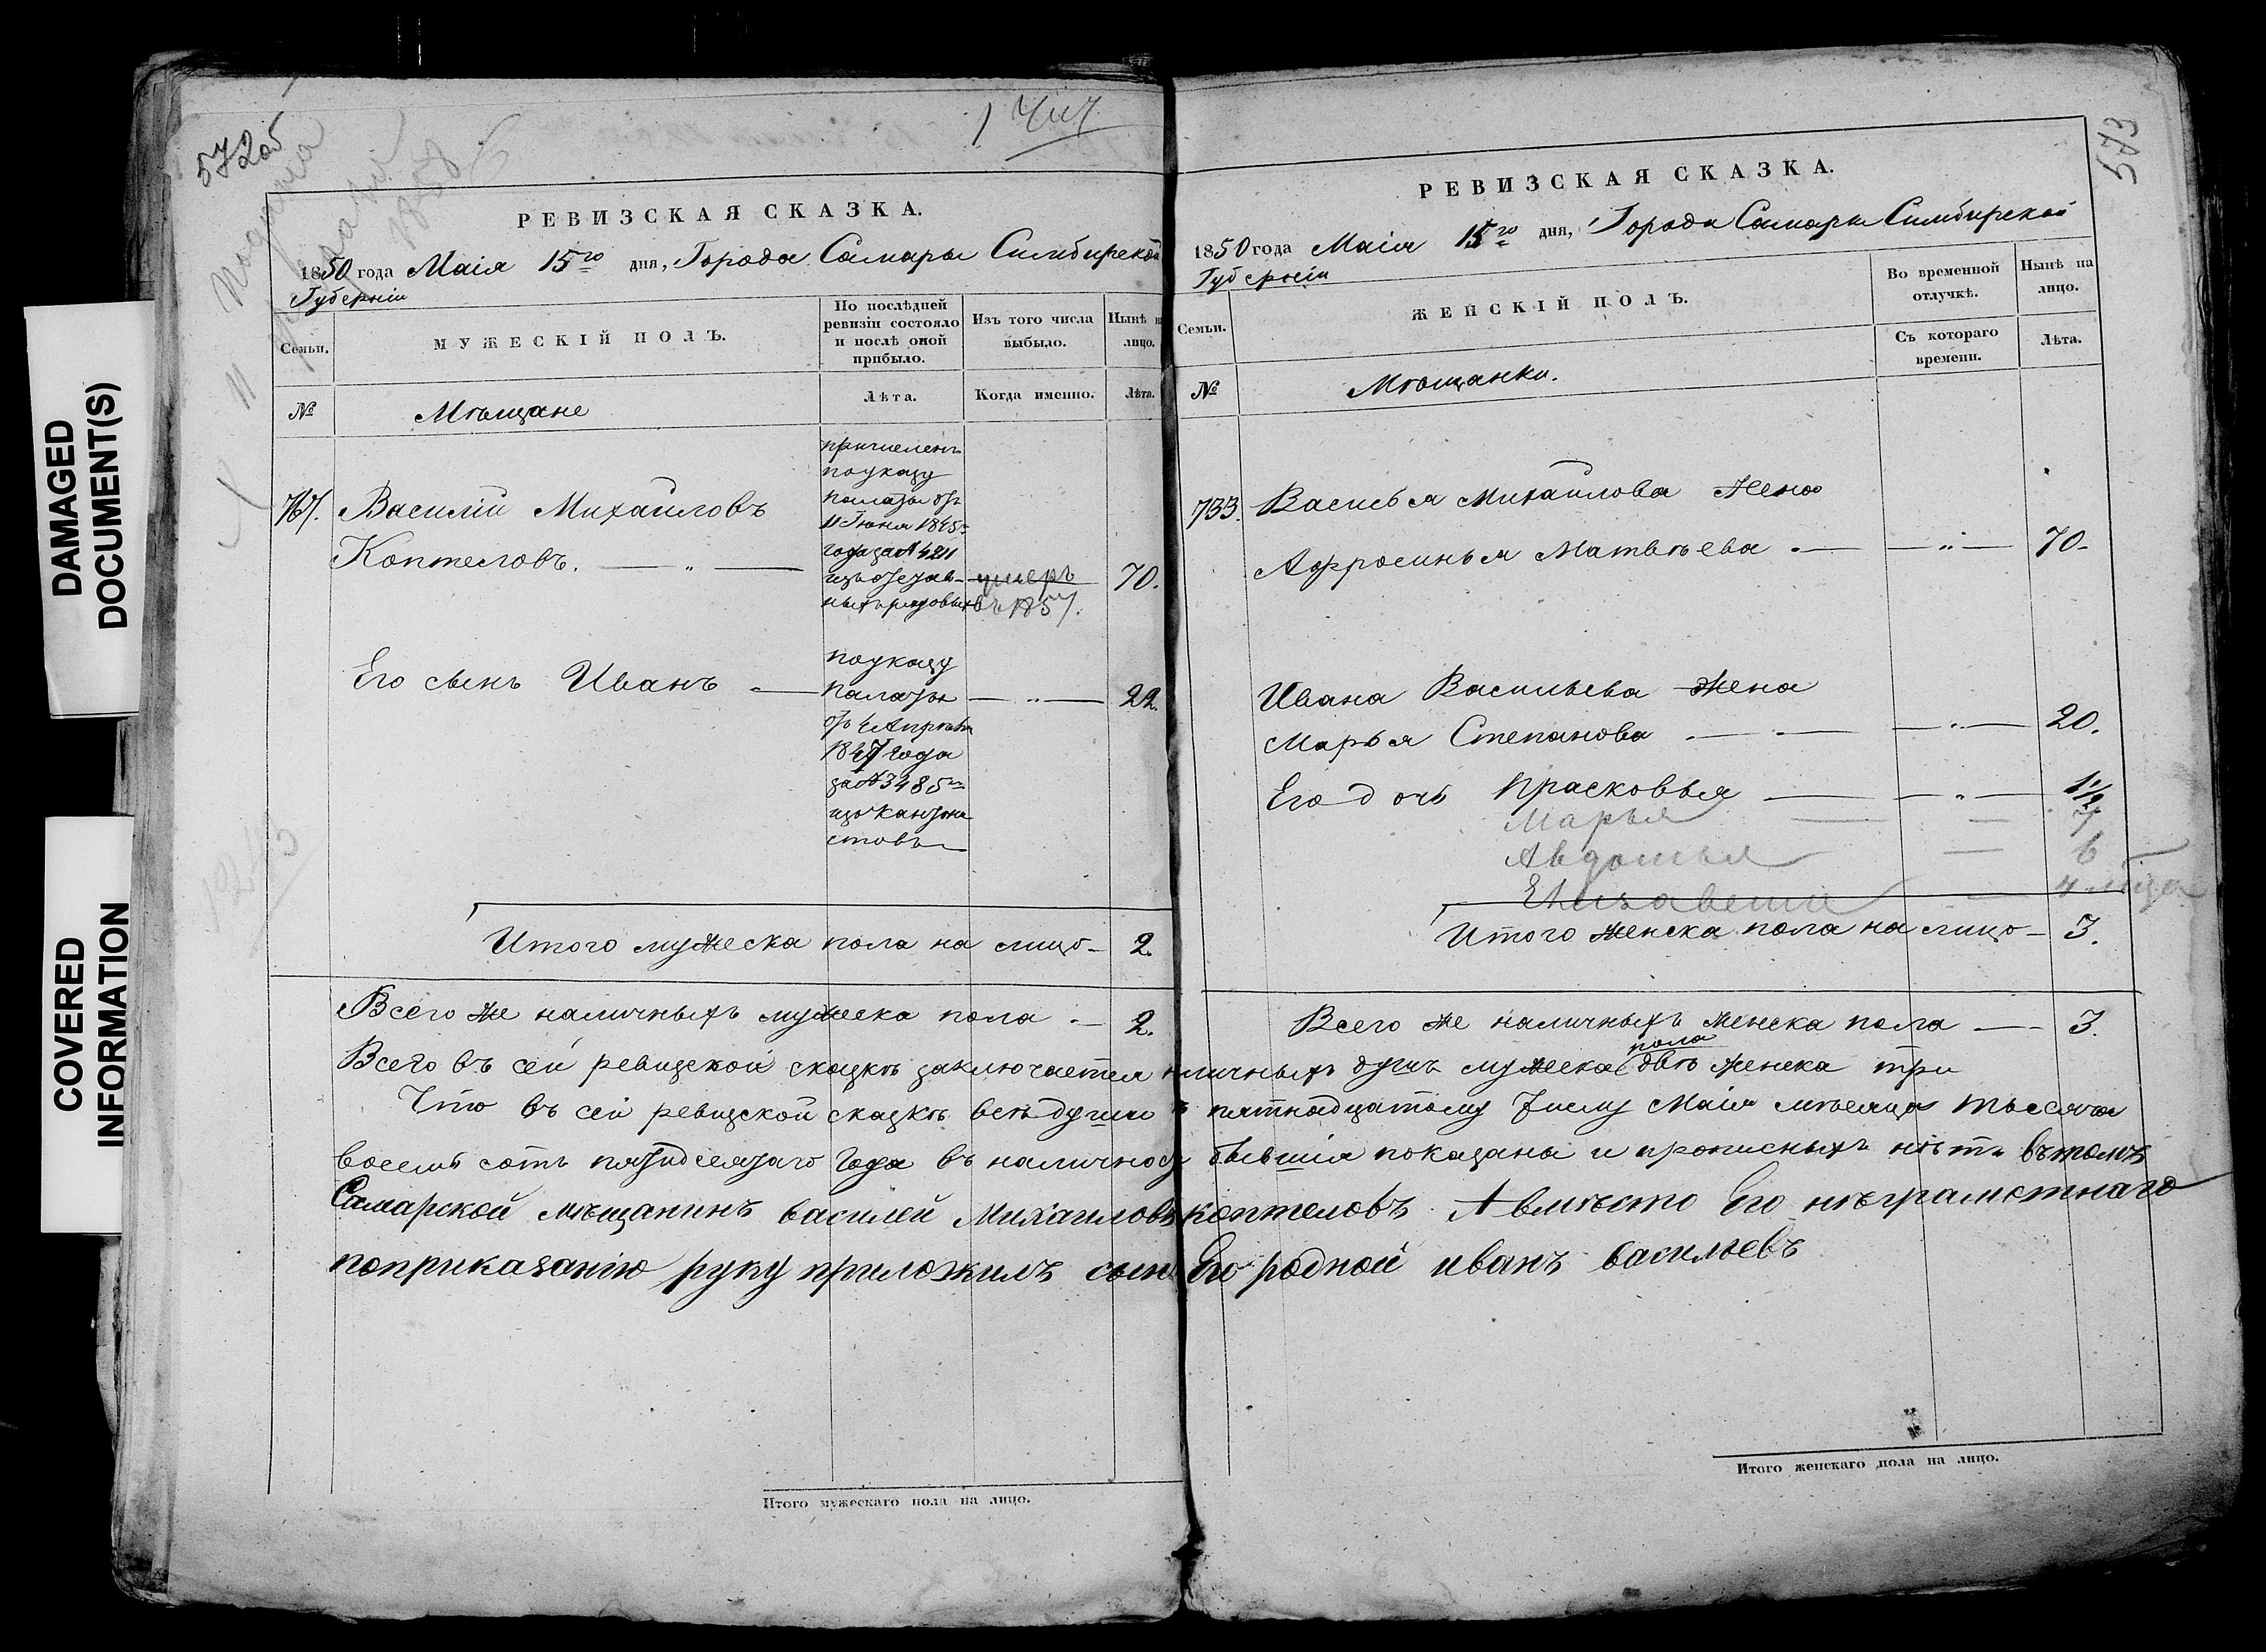 DAMAGED
DOCUMENT(S)
COVERED
INFORMATION
572об
подана
1858
РЕВИЗСКАЯ СКАЗКА.
1850 года Маія 15го дня, Города Самары Симбирской
Губерніи
Семьи.
МУЖЕСКІЙ ПОЛЪ.
По послѣдней
ревизіи состояло
и послѣ оной
прибыло.
Изъ того числа
выбыло.
Нынѣ
лицо.
№
Мѣщане
Лѣта.
Когда именно.
Лѣта.
причисленъ
по указу
палаты отъ
11 Іюня 1845
года за № 4211
изъ отстав-
ныхъ рядовыхъ
Василій Михайловъ
Коптеловъ.
умеръ
въ 1857.
70.
Его сынъ Иванъ
22.
по указу
палаты
отъ 4 Апрѣля
1847 года
за № 3485
изъ кантони
стовъ
Итого мужеска пола на лицо 2.
Всего же наличныхъ мужеска пола 2.
573
РЕВИЗСКАЯ СКАЗКА.
1850 года Маія 15го дня, Города Самары Симбирской
Губерніи
Семьи.
ЖЕНСКІЙ ПОЛЪ.
Во временной
отлучкѣ.
Нынѣ на
лицо.
Съ котораго
времени.
Лѣта.
№
Мѣщанки.
733. Василья Михайлова Жена
Афросинья Матвѣева 70.
Ивана Васильева Жена
Марья Степанова 20.
Его дочь Прасковья 1 1/2
Марья 7
Авдотья 6
Елизавета 4
Итого женска пола на лицо 3.
Всего же наличныхъ женска пола 3.
Всего въ сей ревизской сказкѣ заключается наличныхъ душъ мужеска пола двѣ женска три
Что въ сей ревизской сказкѣ всѣ души къ пятнадцатому числу Маія мѣсяца тысяча
восемь сотъ пятидесятаго года въ наличности бывшія показаны и прописныхъ нѣтъ въ томъ
Самарской мѣщанинъ василей Михайловъ коптеловъ А вмѣсто Его нѣграмотнаго
поприказанію руку приложилъ сынъ Его родной иванъ васильевъ
Итого мужескаго пола на лицо.
Итого женскаго пола на лицо.